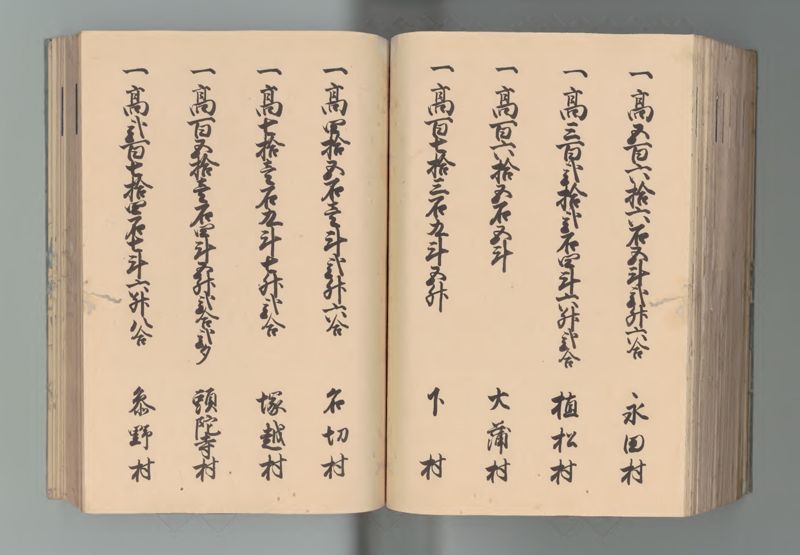 一高五百六拾六石五斗弐升六合 永田村
一高三百弐拾弐石四斗六升弐合 植松村
一高百六拾五石五斗 大蒲村
一高百七拾三石九斗五升 下村
一高四拾五石壱斗弐升六合 名切村
一高七拾壱石九斗七升弐合 塚越村
一高百五拾壱石四斗五升弐合弐夕 頭陀寺村
一高弐百七拾四石七斗六升八合 参野村